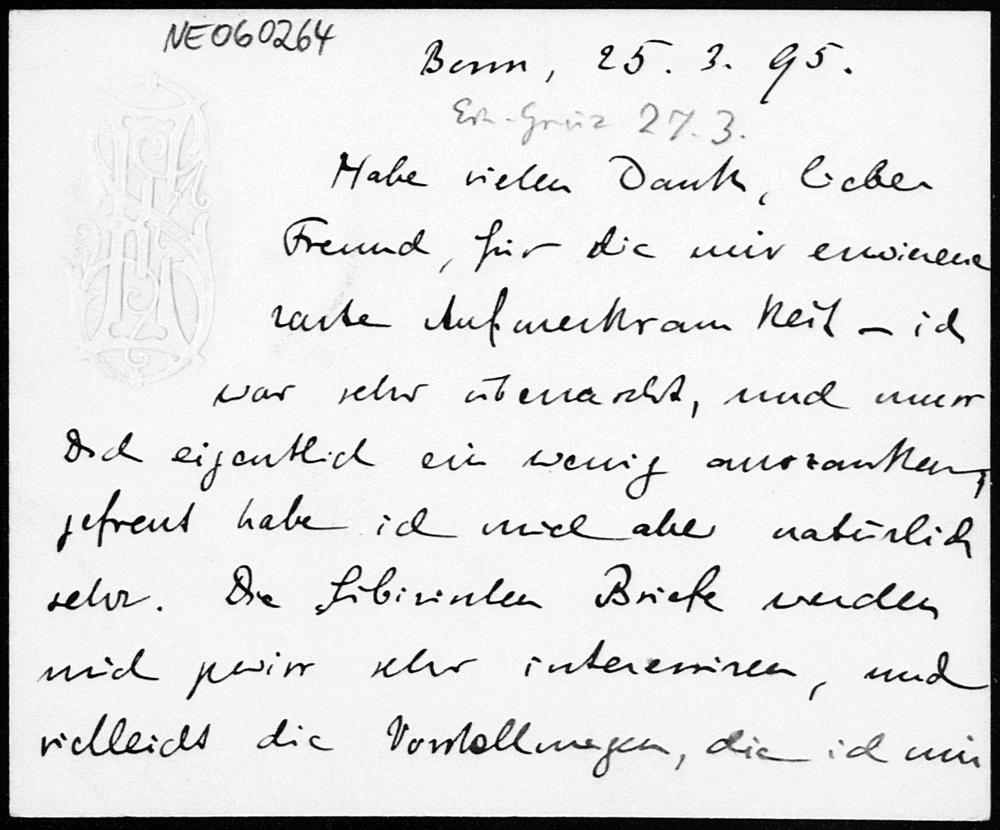 NE060264
Bonn, 25. 3. 95.
27.3.
Habe vielen Dank, lieber
Freund, für die mir erwiesene
zarte Aufmerksamkeit – ich
war sehr überrascht, und muss
Dich eigentlich ein wenig auszanken,
gefreut habe ich mich aber natürlich
sehr. Die Sibirischen Briefe werden
mich gewiss sehr interessiren, und
vielleicht die Vorstellungen, die ich mir